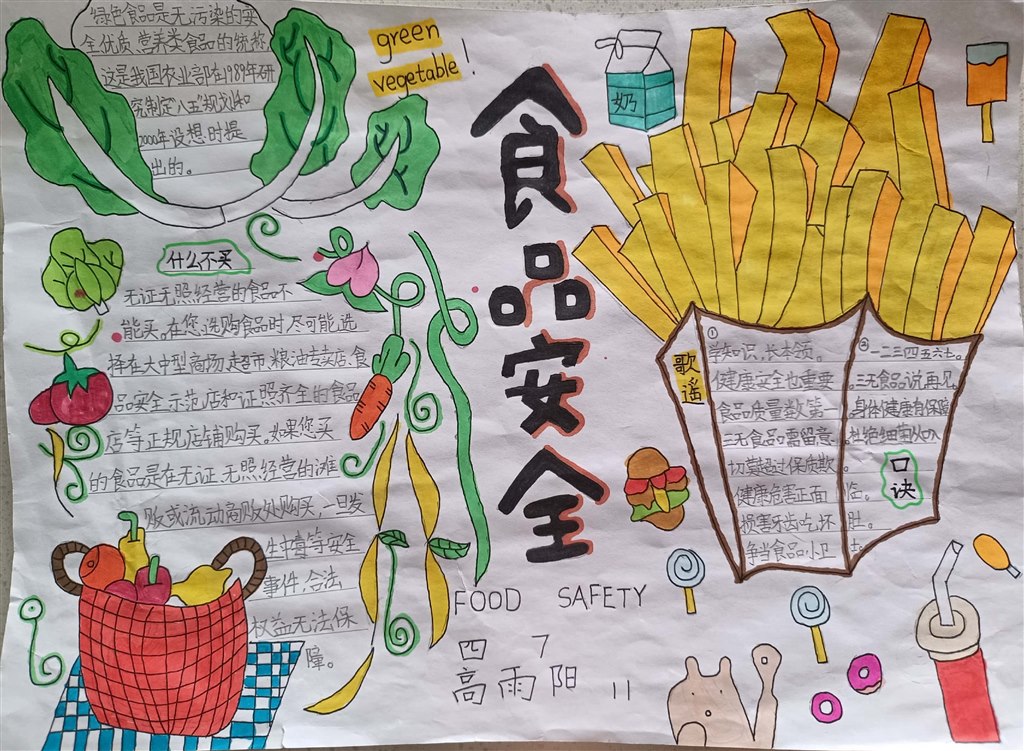 绿色食品是无污染的安
全优质、营养类食品的统称
这是我国农业部在1989年研
究制定"八五"规划和
2000年设想时提
出的。
green
vegetable!
食品安全
奶
什么不买
无证无照经营的食品不
能买。在您选购食品时尽可能选
择在大中型商场、超市、粮油专卖店、食
品安全示范店和证照齐全的食品
店等正规店铺购买。如果您买
的食品是在无证、无照经营的滩
贩或流动商贩处购买,一旦发
生中毒等安全
事件,合法
权益无法保
障。
歌谣
①
学知识,长本领。
健康安全也重要
食品质量数第一
三无食品需留意
切莫超过保质期
健康危害正面临。
损害牙齿吃坏肚。
争当食品小卫士。
②一二三四五六七。
三无食品说再见
身体健康有保障
杜绝细菌从口入
口诀
FOOD SAFETY
四 7
高雨阳 11